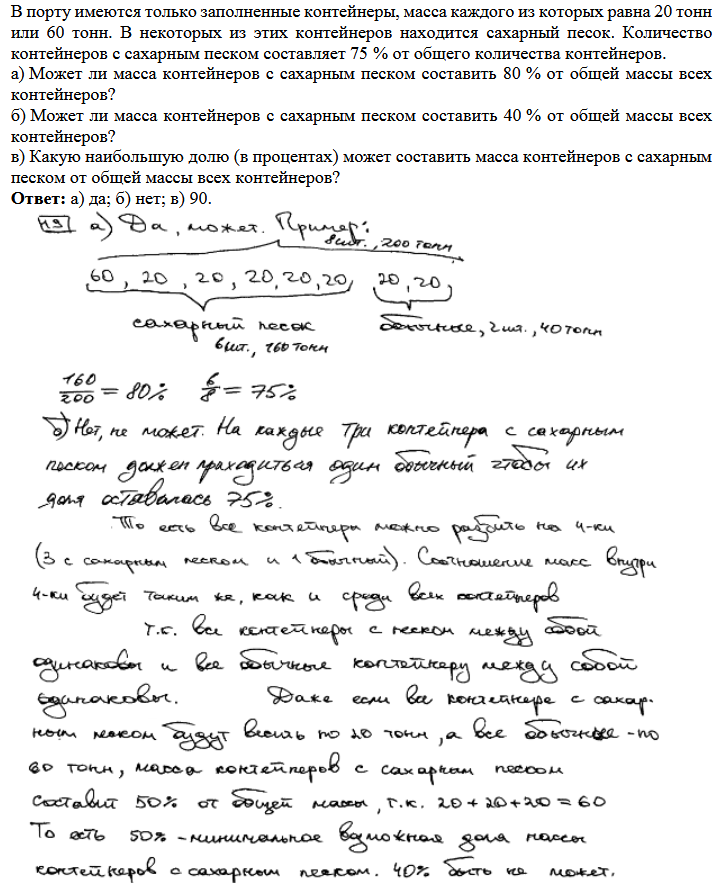 В порту имеются только заполненные контейнеры, масса каждого из которых равна 20 тонн
или 60 тонн. В некоторых из этих контейнеров находится сахарный песок. Количество
контейнеров с сахарным песком составляет 75 % от общего количества контейнеров.
а) Может ли масса контейнеров с сахарным песком составить 80 % от общей массы всех
контейнеров?
б) Может ли масса контейнеров с сахарным песком составить 40 % от общей массы всех
контейнеров?
в) Какую наибольшую долю (в процентах) может составить масса контейнеров с сахарным
песком от общей массы всех контейнеров?
Ответ: а) да; б) нет; в) 90.
19 а) Да, может. Пример:
8шт., 200 тонн
60, 20, 20, 20, 20, 20, 20, 20,
сахарный песок обычные, 2 шт., 40 тонн
6шт., 160 тонн
160/200 = 80% 6/8 = 75%
б) Нет, не может. На каждые три контейнера с сахарным
песком должен приходиться один обычный чтобы их
доля оставалась 75%.
То есть все контейнеры можно разбить на 4-ки
(3 с сахарным песком и 1 обычный). Соотношение масс внутри
4-ки будет таким же, как и среди всех контейнеров
т.к. все контейнеры с песком между собой
одинаковы и все обычные контейнеры между собой
одинаковы. Даже если все контейнере с сахар-
ным песком будут весить по 20 тонн, а все обычные - по
60 тонн, масса контейнеров с сахарным песком
составит 50% от общей массы, т.к. 20+20+20=60
То есть 50% - минимальное возможная доля массы
контейнеров с сахарным песком. 40% быть не может.